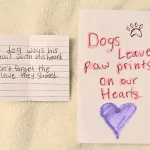 dog wags his
tail with his heart
don't forget the
love they shared
Dogs
Leave
paw prints
on our
Hearts